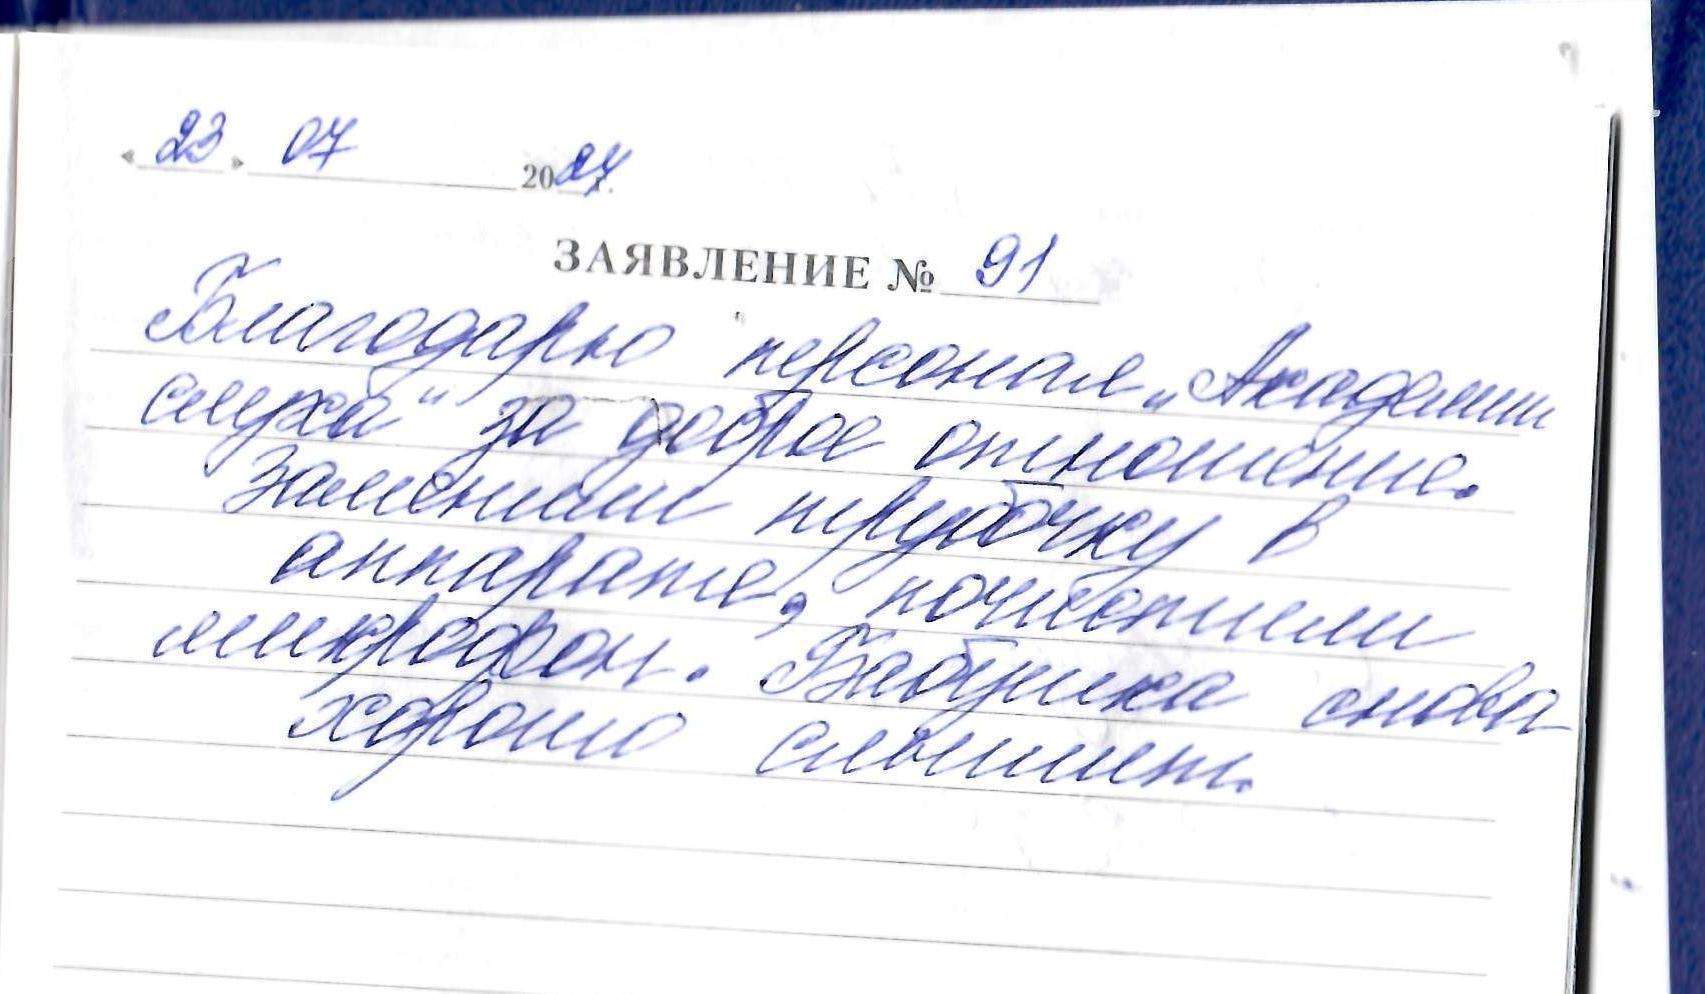 «23» 07 2024 г.
ЗАЯВЛЕНИЕ № 91
Благодарю персонал „Академии
слуха“ за доброе отношение.
Заменили трубочку в
аппарате, почистили
микрофон. Бабушка снова
хорошо слышит.